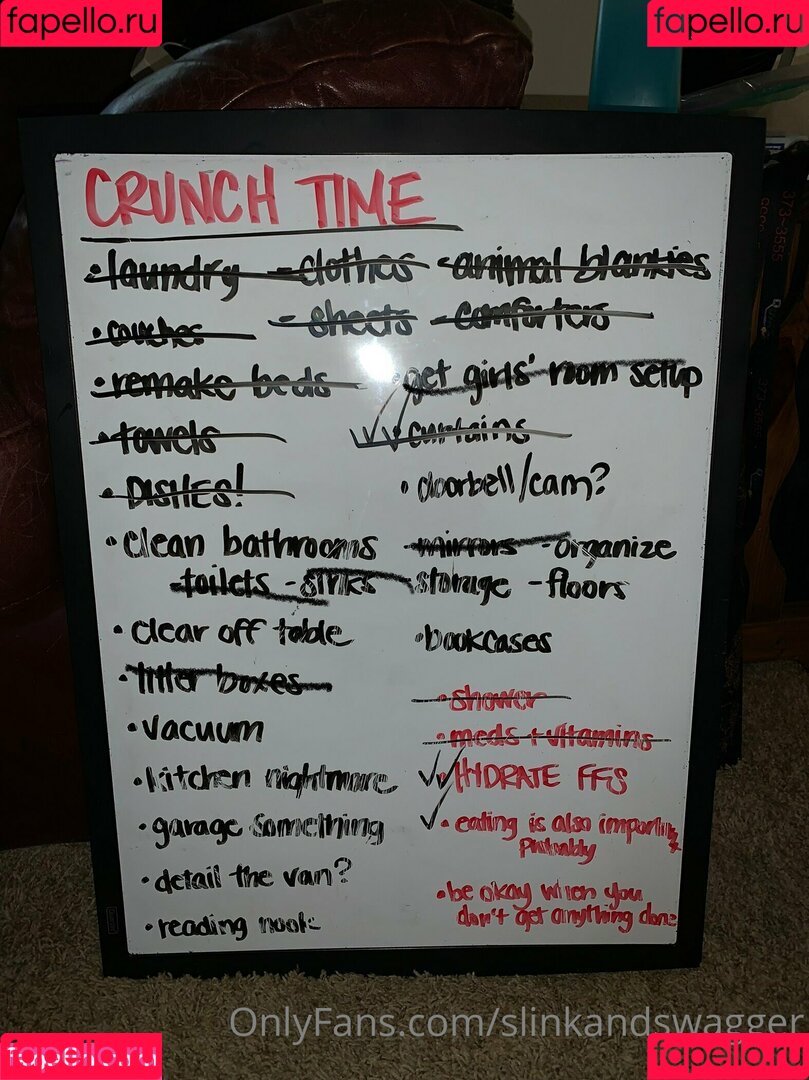 fapello.ru
fapello.ru
CRUNCH TIME
• laundry - clothes - animal blankies
• couches - sheets - comforters
• remake beds • get girls' room setup
• towels • curtains
• DISHES! • doorbell/cam?
• clean bathrooms - mirrors - organize
toilets - sinks storage - floors
• clear off table • bookcases
• litter boxes
• shower
• vacuum • meds + vitamins
• kitchen nightmare • HYDRATE FFS
• garage something • eating is also important
probably
• detail the van?
• be okay when you
• reading nook don't get anything done
373-3555
OnlyFans.com/slinkandswagger
fapello.ru
fapello.ru